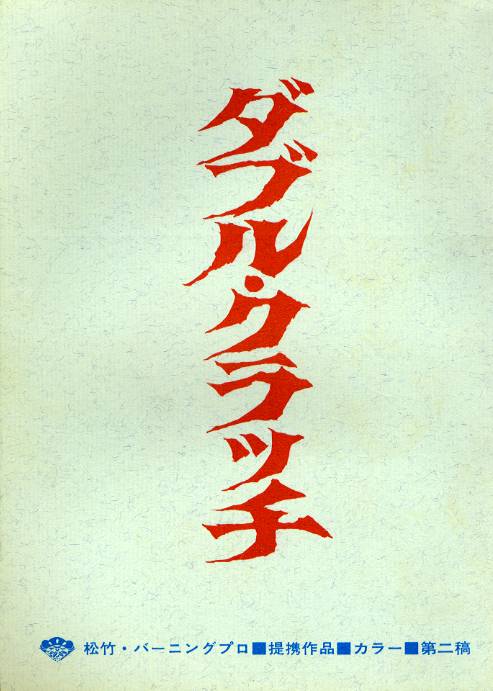 ダブル・クラッチ
松竹・バーニングプロ■提携作品■カラー■第二稿